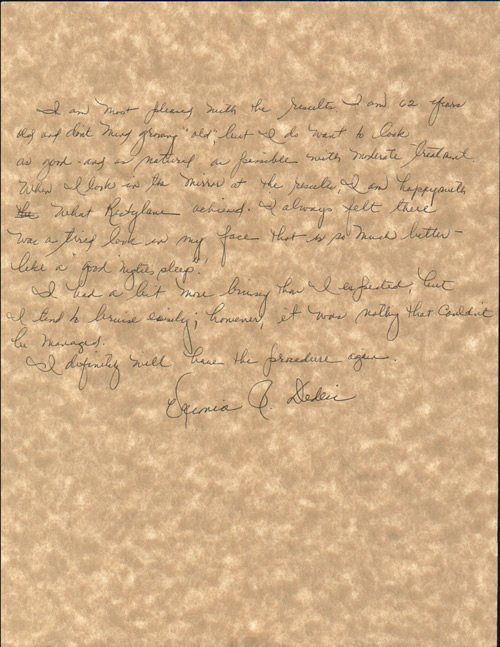 I am most pleased with the results. I am 62 years
old and dont mind growing "old", but I do want to look
as good - and as natural as possible with moderate treatment.
When I look in the mirror at the results, I am happy with
what Restylane achieved. I always felt there
was a tired look in my face that is so much better -
like a "good nights sleep".
I had a bit more bruising than I expected, but
I tend to bruise easily; however, it was nothing that couldn't
be managed.
I definitely will have the procedure again.